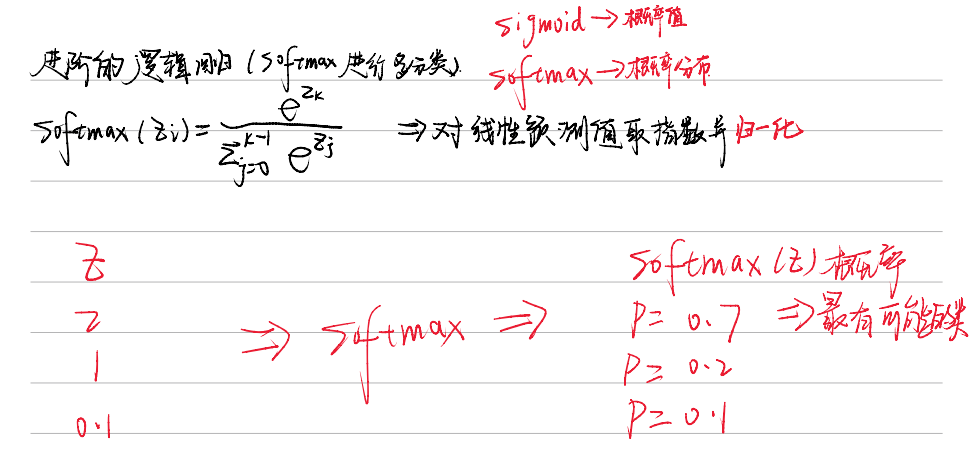 sigmoid → 概率值
进阶的逻辑回归 (softmax 进行多分类).
softmax → 概率分布
softmax (zi) = e^{zk} / Σ_{j=0}^{k-1} e^{zj} ⇒ 对线性预测值取指数并归一化
z
softmax (z) 概率
2 ⇒ softmax ⇒ P = 0.7 ⇒ 最有可能的类
1
P = 0.2
0.1
P = 0.1